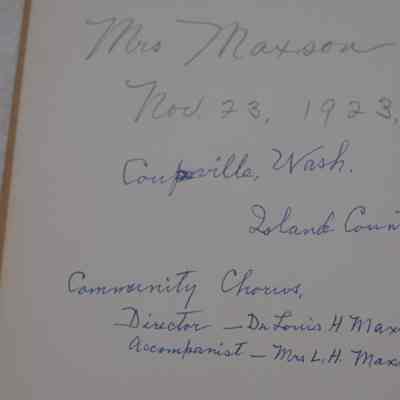 Mrs Maxson
Nov. 23, 1923,
Coupeville, Wash.
Island Coun
Community Chorus,
Director — Dr Louis H Max
Accompanist — Mrs L. H. Max